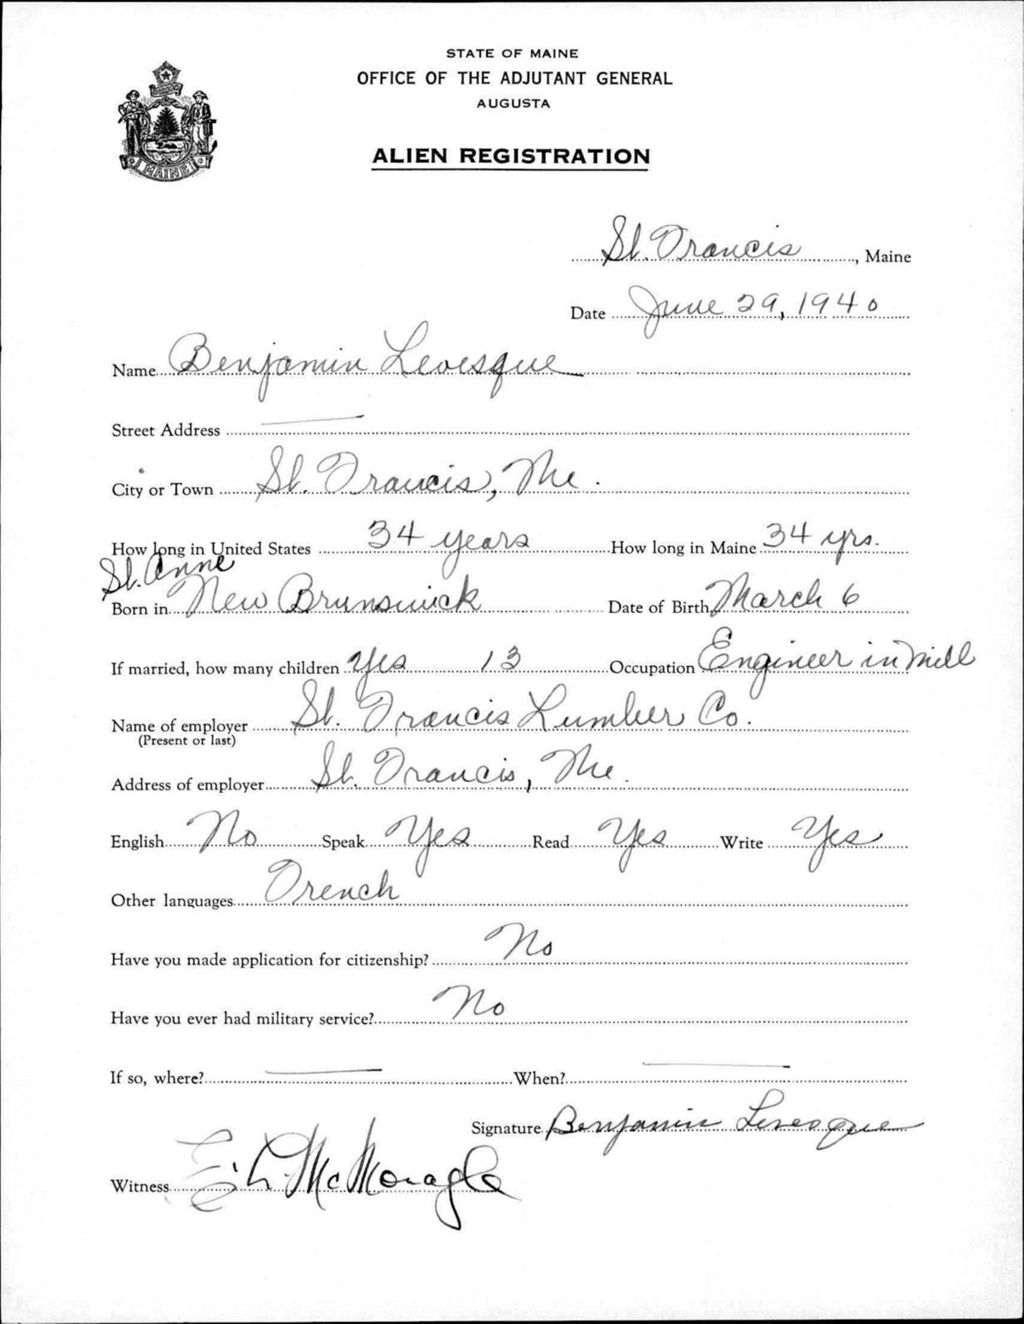 STATE OF MAINE
OFFICE OF THE ADJUTANT GENERAL
AUGUSTA
ALIEN REGISTRATION
MAINE
St. Francis, Maine
Date June 29, 1940
Name Benjamin Levesque
Street Address —
City or Town St. Francis, Me.
How long in United States 34 years How long in Maine 34 yrs.
St. Anne
Born in New Brunswick Date of Birth March 6
If married, how many children Yes 13 Occupation Engineer in Mill
Name of employer St. Francis Lumber Co.
(Present or last)
Address of employer St. Francis, Me.
English No Speak Yes Read Yes Write Yes
Other languages French
Have you made application for citizenship? No
Have you ever had military service? No
If so, where? — When? —
Signature Benjamin Levesque
Witness McMonagle